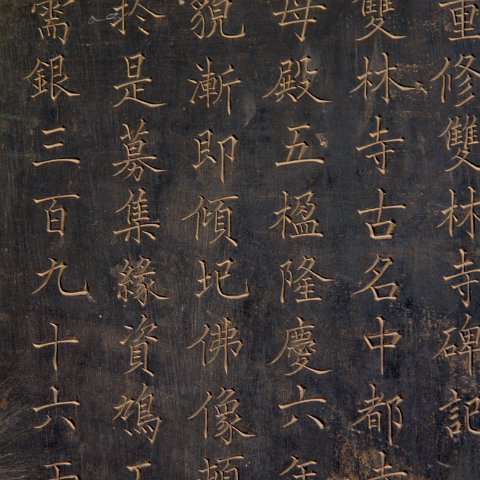 重修雙林寺碑記
雙林寺古名中都寺
母殿五楹隆慶六年
貌漸即傾圮佛像頓
於是募集緣資鳩工
需銀三百九十六